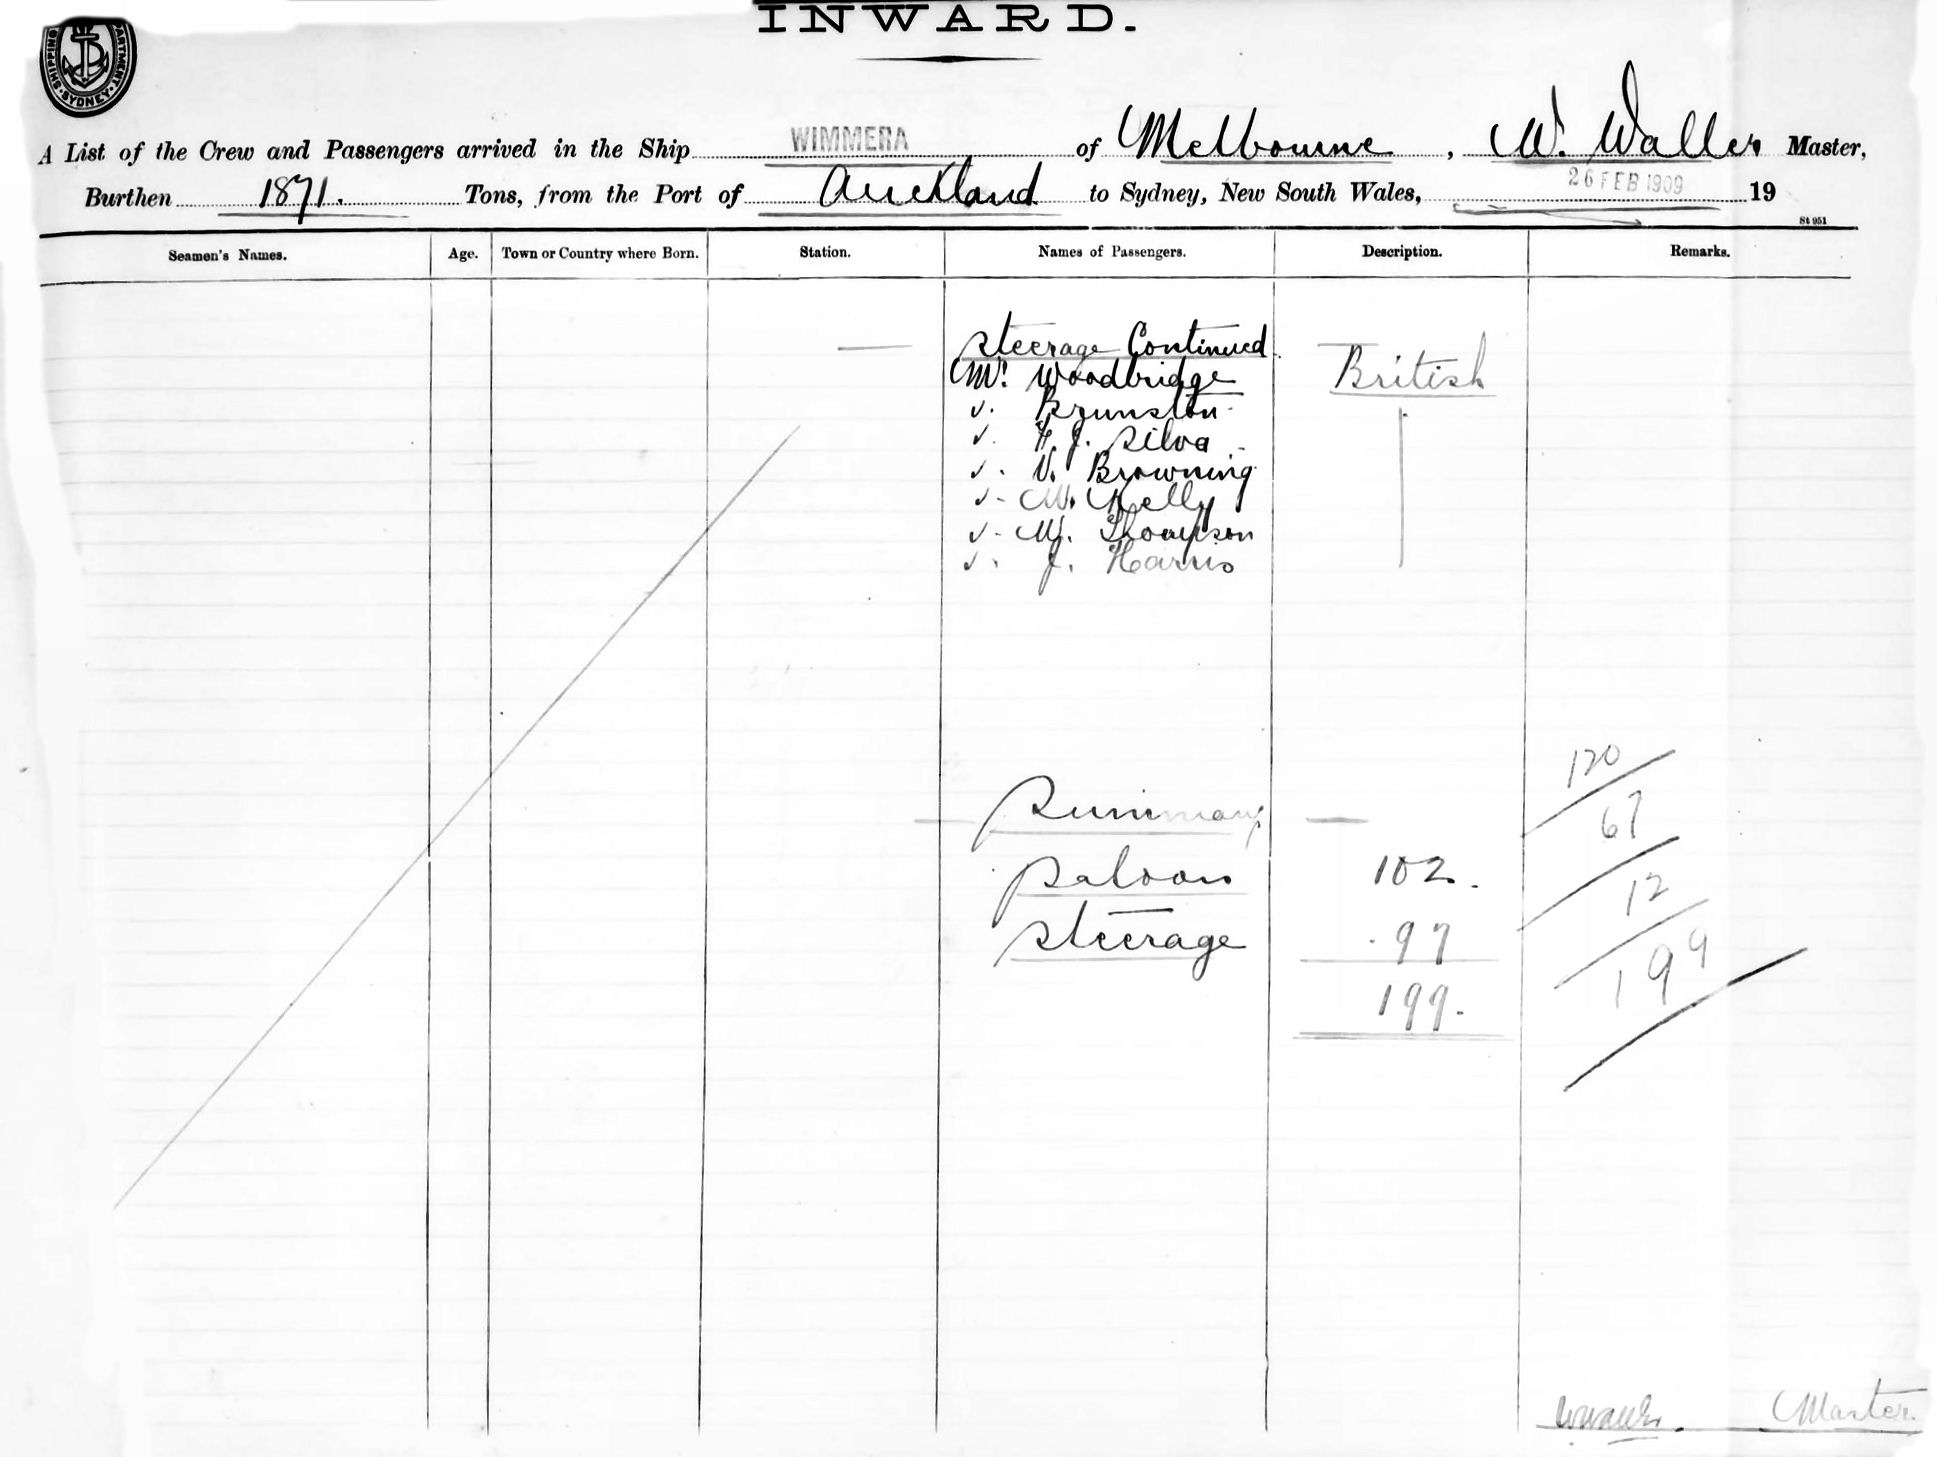 INWARD.
SHIPPING DEPARTMENT. SYDNEY.
A List of the Crew and Passengers arrived in the Ship WIMMERA of Melbourne, W. Waller Master,
Burthen 1871. Tons, from the Port of Auckland to Sydney, New South Wales, 26 FEB 1909 19
St 951
Seamen's Names. Age. Town or Country where Born. Station. Names of Passengers. Description. Remarks.
Steerage Continued
Mr Woodbridge British
Brunston
F. J. Silva
V. Browning
W. Kelly
W. Thompson
J. Harris
120
Summary 67
Saloon 102. 12
Steerage 97 199
199.
Master.